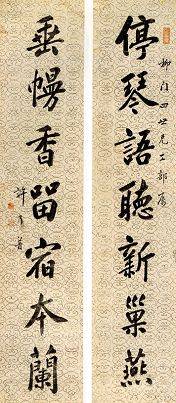 停琴語聽新巢燕
垂幔香留宿本蘭